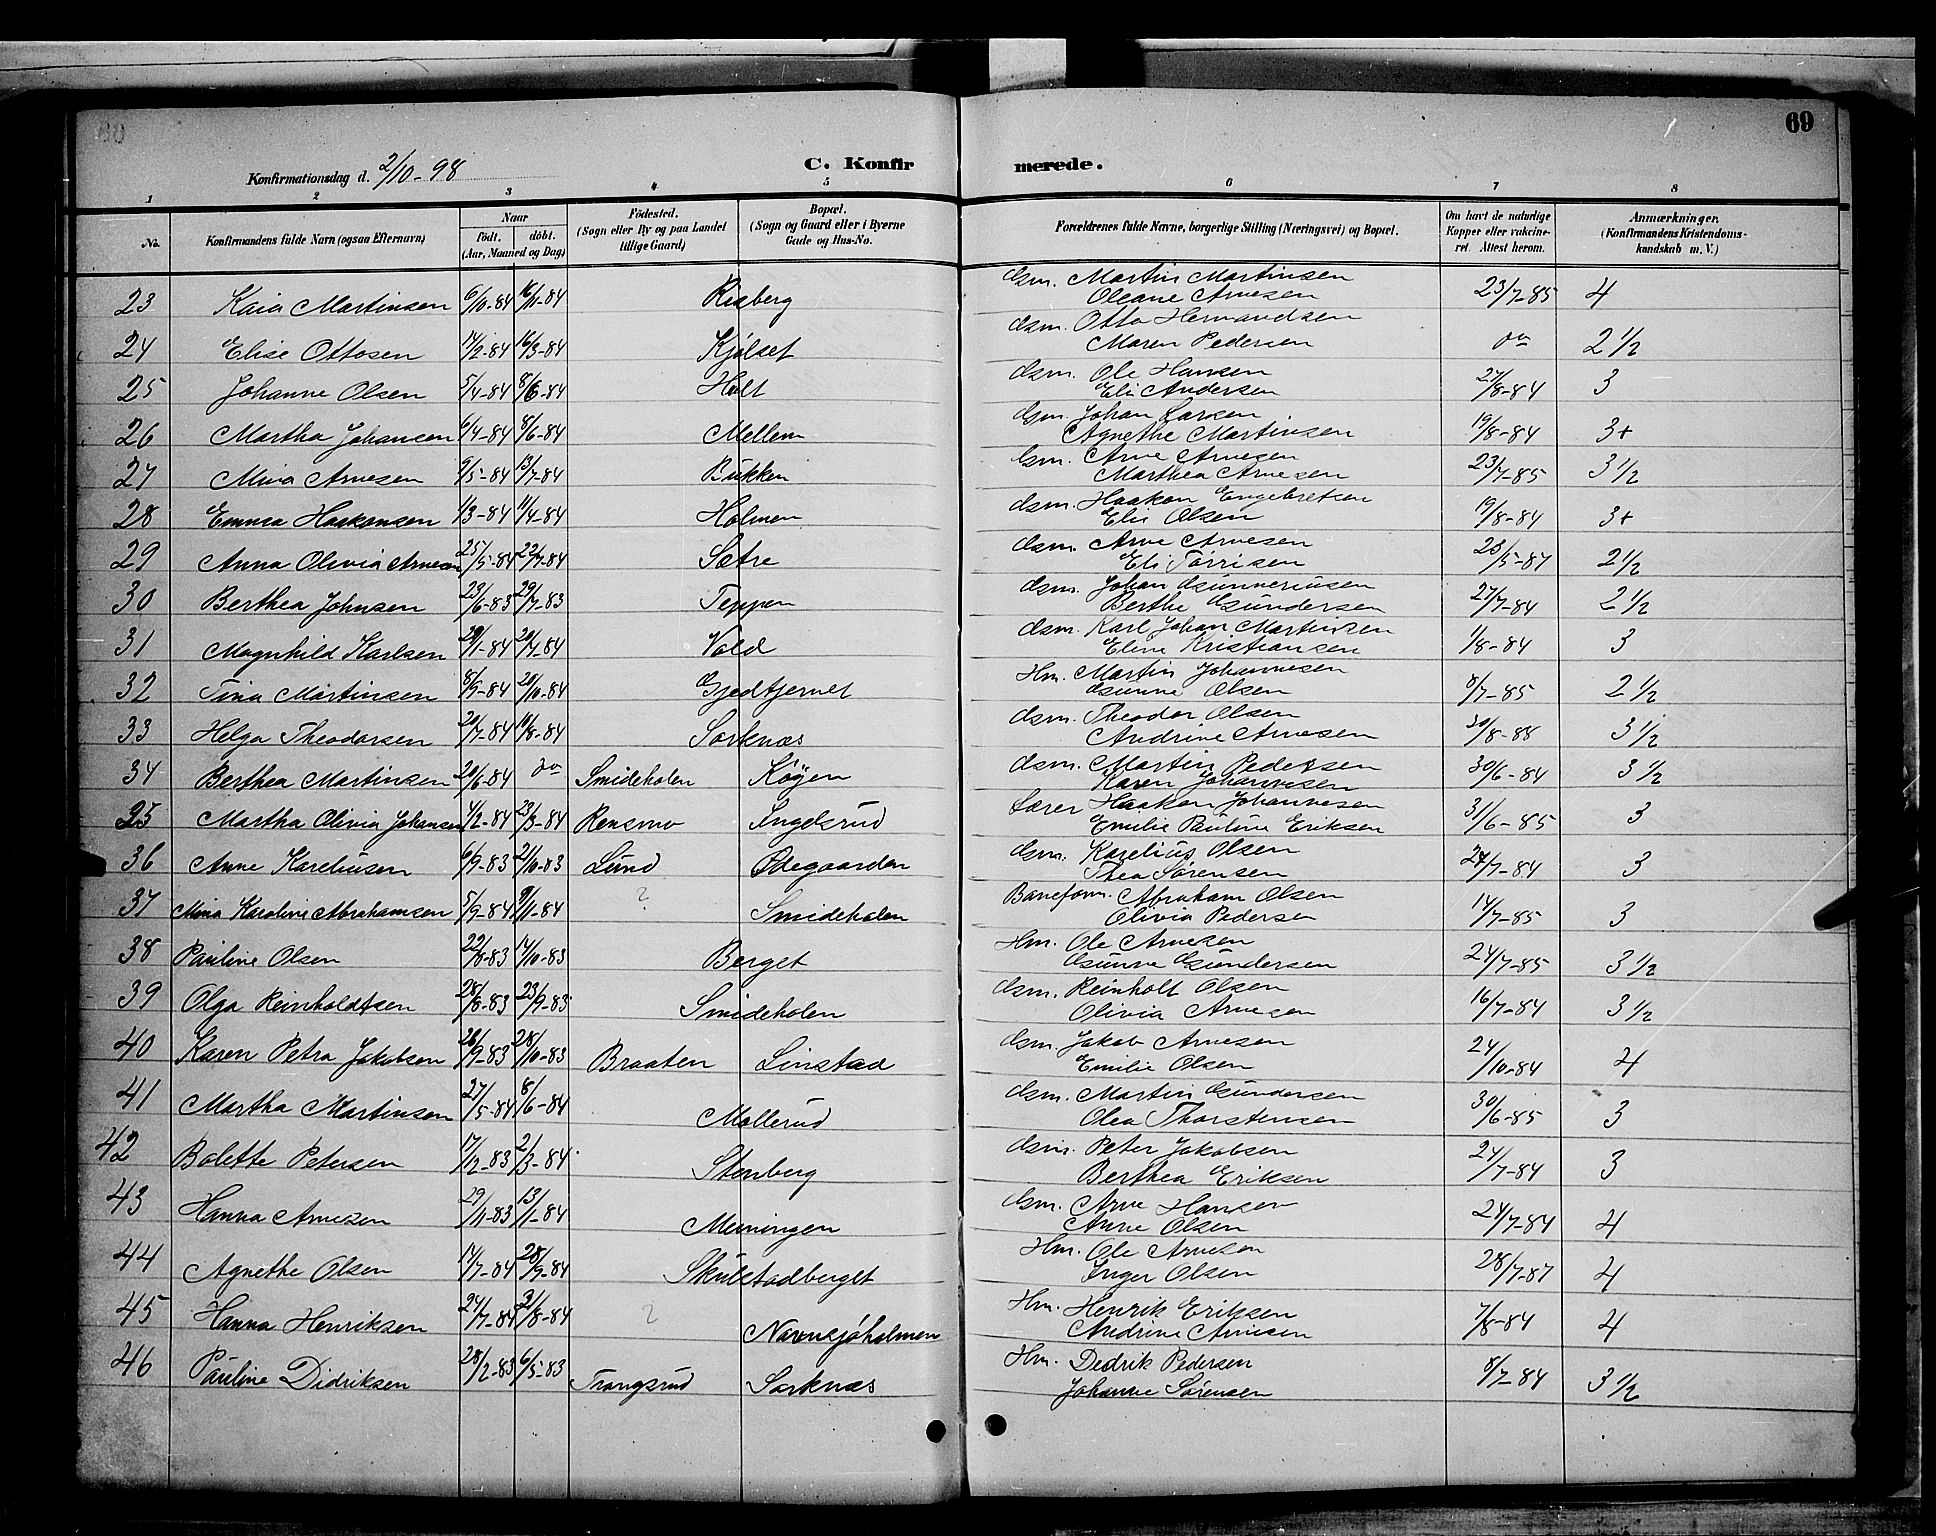 69
Konfirmationsdag d. 2/10-98
C. Konfirmerede.
1 2 3 4 5 6 7 8
No. Konfirmandens fulde Navn (ogsaa Efternavn) Naar födt. döbt. (Aar, Maaned og Dag) Födested. (Sogn eller By og paa Landet tillige Gaard) Bopæl. (Sogn og Gaard eller i Byerne Gade og Hus-No. Forældrenes fulde Navne, borgerlige Stilling (Næringsvei) og Bopæl. Om havt de naturlige Kopper eller vakcineret Attest herom. Anmærkninger. (Konfirmandens Kristendomskundskab m. V.)
23 Kaia Martinsen 6/10-84 16/11-84 Risberg Gsm. Martin Martinsen 23/7-85 4
Oleane Arnesen
24 Elise Ottosen 14/2-84 16/3-84 Kjölset Gsm. Otto Hermandsen do 2 1/2
Maren Pedersen
25 Johanne Olsen 5/4-84 8/6-84 Holt Gsm. Ole Hansen 27/8-84 3
Eli Andersen
26 Martha Johansen 6/4-84 8/6-84 Mellem Gsm. Johan Larsen 19/8-84 3+
Agnethe Martinsen
27 Mina Arnesen 9/5-84 13/7-84 Bukken Gsm. Arne Arnesen 23/7-85 3 1/2
Marthea Arnesen
28 Emma Haakonsen 1/3-84 11/4-84 Holmen Gsm. Haakon Engebretsen 19/8-84 3+
Elis Olsen
29 Anna Olivia Arnesen 25/5-84 22/7-84 Sætre Gsm. Arne Arnesen 28/5-87 2 1/2
Eli Törrisen
30 Berthea Johnsen 23/6-83 29/7-83 Teppen Gsm. Johan Gunneriusen 27/7-84 2 1/2
Berthe Gundersen
31 Magnhild Karlsen 29/1-84 20/4-84 Vold Gsm. Karl Johan Martinsen 1/8-84 3
Eline Kristiansen
32 Tina Martinsen 8/9-84 20/10-84 Gjedtjernet Hm. Martin Johannesen 8/7-85 2 1/2
Gunne Olsen
33 Helga Theodorsen 20/7-84 10/8-84 Sorknæs Gsm. Theodor Olsen 30/8-88 3 1/2
Andrine Arnesen
34 Berthea Martinsen 20/6-84 do Smideholen Køyen Gsm. Martin Pedersen 30/6-84 3 1/2
Karen Johannesen
35 Martha Olivia Johansen 4/2-84 23/3-84 Rensmo Ingelsrud Lærer Haakon Johannesen 31/6-85 3
Emilie Pauline Eriksen
36 Anne Kareliusen 6/9-83 21/10-83 Lund Ødegaarden Gsm. Karelius Olsen 24/7-84 3
Thea Sørensen
37 Mina Karoline Abrahamsen 5/9-84 9/11-84 ? Smideholen Baneform. Abraham Olsen 14/7-85 3
Olivia Pedersen
38 Pauline Olsen 22/8-83 14/10-83 Berget Hm. Ole Arnesen 24/7-85 3 1/2
Gunne Gundersen
39 Olga Reinholdtsen 28/8-83 23/9-83 Smideholen Gsm. Reinholt Olsen 16/7-84 3 1/2
Olivia Arnesen
40 Karen Petra Jakobsen 26/9-83 28/10-83 Braaten Linstad Gsm. Jakob Arnesen 24/10-84 4
Emilie Olsen
41 Martha Martinsen 27/5-84 8/6-84 Mollerud Gsm. Martin Gundersen 30/6-85 3
Olea Thorstensen
42 Bolette Petersen 7/12-83 2/3-84 Stenberg Gsm. Peter Jakobsen 24/7-84 3
Berthea Eriksen
43 Hanna Arnesen 29/11-83 13/1-84 Meiningen Gsm. Arne Hansen 24/7-84 4
Anne Olsen
44 Agnethe Olsen 14/7-84 28/9-84 Skulstadberget Hm. Ole Arnesen 28/7-87 4
Inger Olsen
45 Hanna Henriksen 24/7-84 31/8-84 ? Norensjøholmen Hm. Henrik Eriksen 7/8-84 4
Andrine Arnesen
46 Pauline Didriksen 28/2-83 6/5-83 Trangsrud Sorknæs Hm. Dedrik Pedersen 8/7-84 3 1/2
Johanne Sørensen